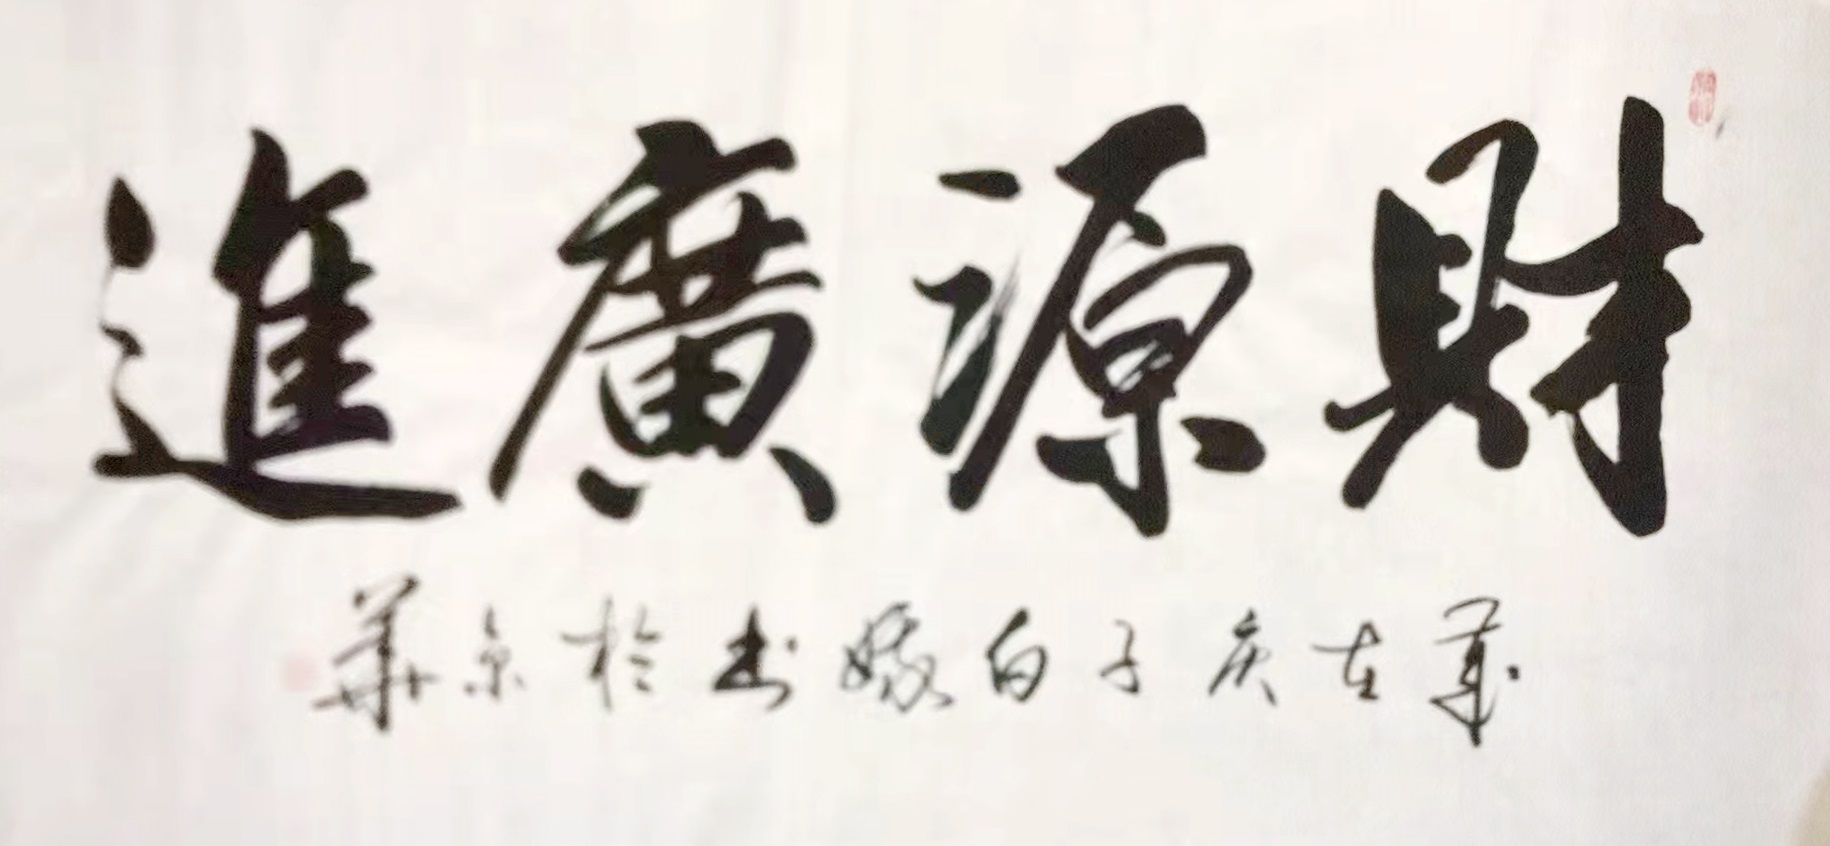 財源廣進
歲在庚子白嫁书於京華